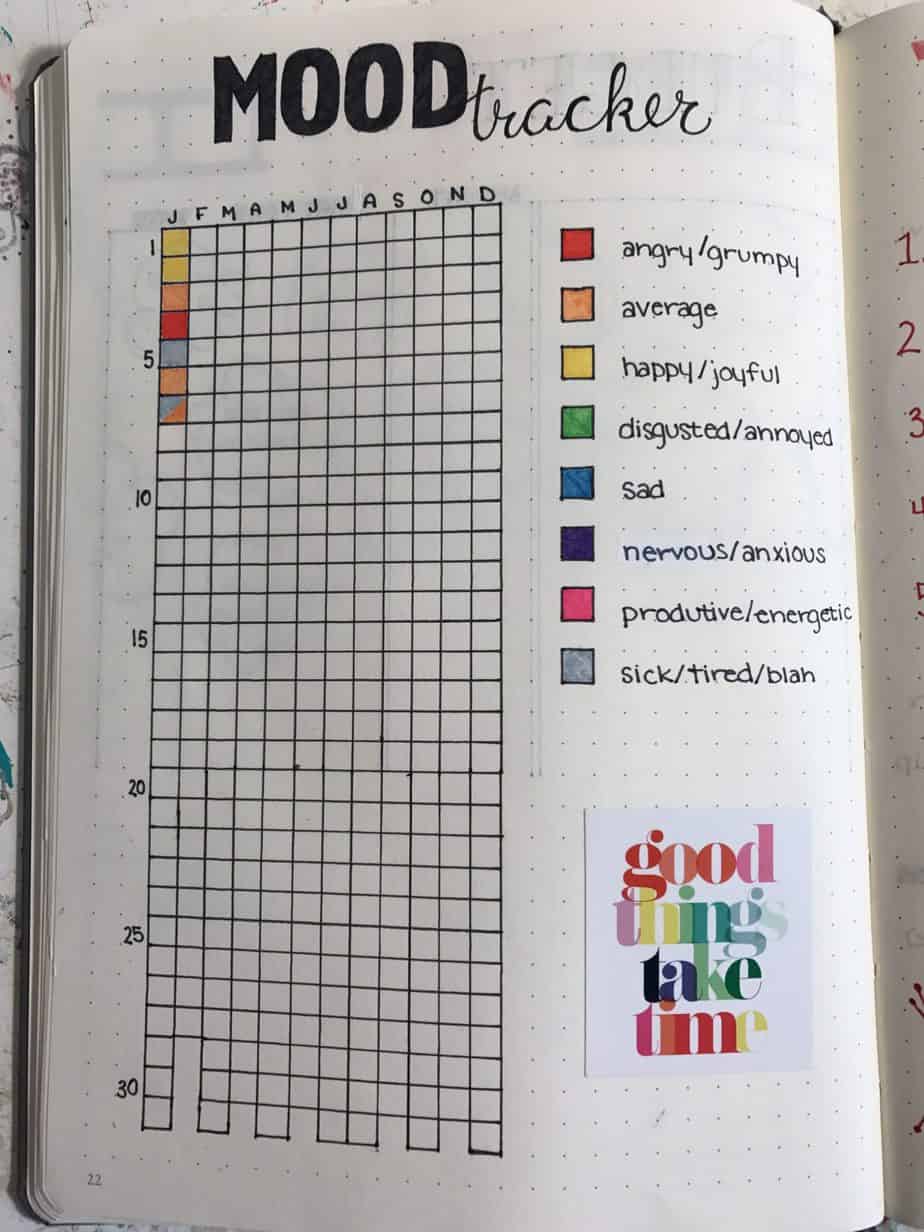 MOOD tracker
J F M A M J J A S O N D
1
5
10
15
20
25
30
angry/grumpy
average
happy/joyful
disgusted/annoyed
sad
nervous/anxious
produtive/energetic
sick/tired/blah
good
things
take
time
22
1.
2
3
4
5